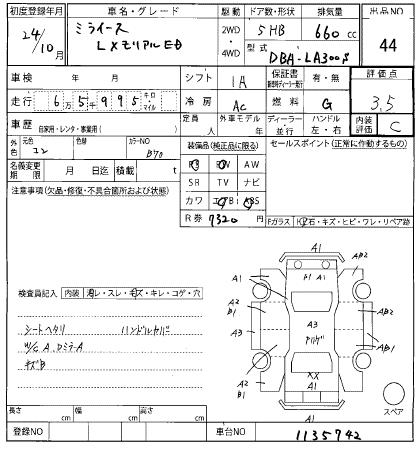 初度登録年月 車名・グレード 駆動 ドア数・形状 排気量 出品NO
24/10月 ミライース 2WD・4WD 5HB 660cc 44
LXメモリアルED 型式 DBA-LA300S
車検 年 月 シフト IA 保証書 新車時ディーラー発行 有・無 評価点
走行 6万5千995 キロ・マイル 冷房 AC 燃料 G 3.5
車歴 自家用・レンタ・事業用( ) 定員 人 外車モデル 年 ディーラー・並行 ハンドル 左・右 内装評価 C
外色 元色 コン 色替 カラーNO B70 装備品(純正品に限る) セールスポイント(正常に作動するもの)
名義変更期限 月 日迄 積載 t PS PW AW
注意事項(欠品・修復・不具合箇所および状態) SR TV ナビ
カワ エアB ABS
R券 7320円
Fガラス 飛石・キズ・ヒビ・ワレ・リペア跡
検査員記入 内装 汚レ・スレ・キズ・キレ・コゲ・穴
シートヘタリ ハンドルカバー
W/C A、DミラーA
キズB
A1
A1 A1 AB2
A2 B1 A3 AB2
A3 AB1
A2 B1 XX A1 A2
A1
スペア
長さ cm 幅 cm 高さ cm
登録NO 車台NO 1135742